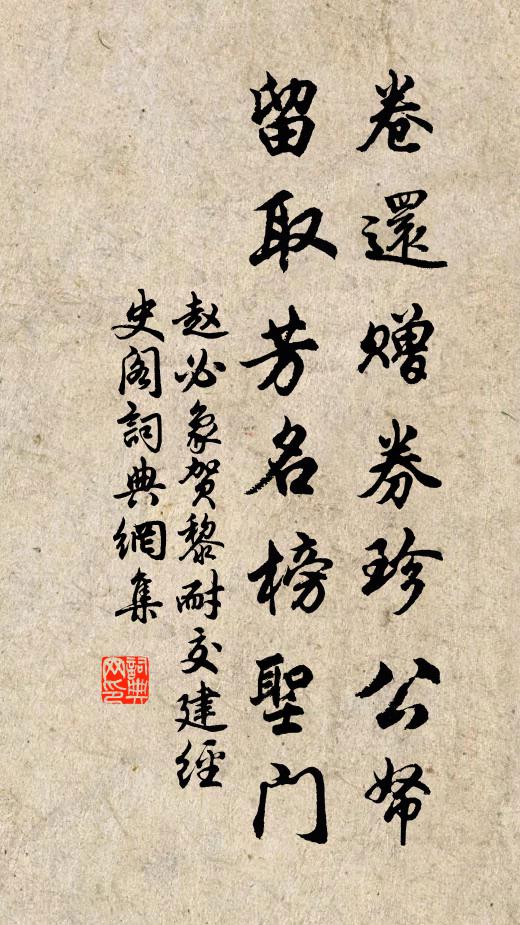 卷還赠券珍公帑
留取芳名榜聖门
赵必象贺黎耐交建經
史阁詞典網集
詞典网印